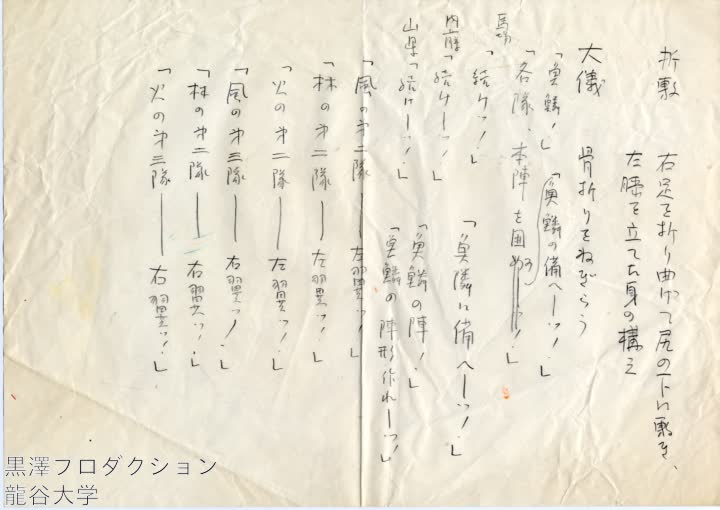 折敷　右足を折り曲げて尻の下に敷き、
左膝を立てた身の構え
大儀　骨折りをねぎらう
「魚鱗！」「魚鱗の備へーッ！」
「各隊、本陣を固めろーッ！」
馬場「続けッ！」
内藤「続けーッ！」
山県「続けーッ！」
「魚隣に備へーッ！」
「魚鱗の陣！」
「魚鱗の陣形作れーッ！」
「風の第二隊──左翼ッ！」
「林の第二隊──左翼ッ！」
「火の第二隊──左翼ッ！」
「風の第三隊──右翼ッ！」
「林の第三隊──右翼ッ！」
「火の第三隊──右翼ッ！」
黒澤プロダクション
龍谷大学